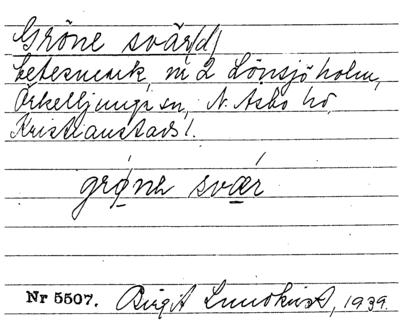 Gröne svär/d/
betesmark, m 2 Lönsjöholm,
Örkelljunga sn, N. Åsbo hd,
Kristianstads l.
grønə svær
Nr 5507. Birgit Lundkvist, 1939.